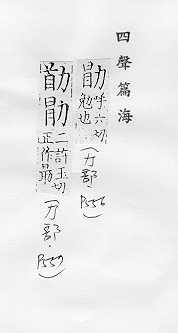 四聲篇海
勖 呼六切 勉也．(力部．P556)
二許玉切 正作勗 (力部．P559)